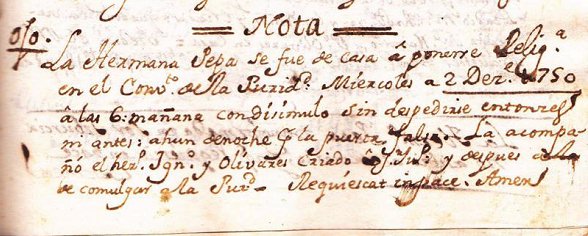 Nota
o/o.
La Hermana Pepa se fue de casa â ponerse Relig.ª
en el Conv.to de la Purid.d Miercoles a 2 Dez.e 1750
â las 6 mañana con disimulo sin despedirse entonzes
ni antes: ahun de noche p.r la puerta falsa. La acompa-
ñó el her.o Ign.o y Olivares Criado y despues
de comulgar a la Pur.d Requiescat in pace. Amen